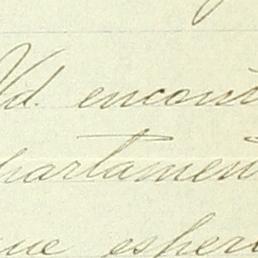 Vd. encont
partament
que esper